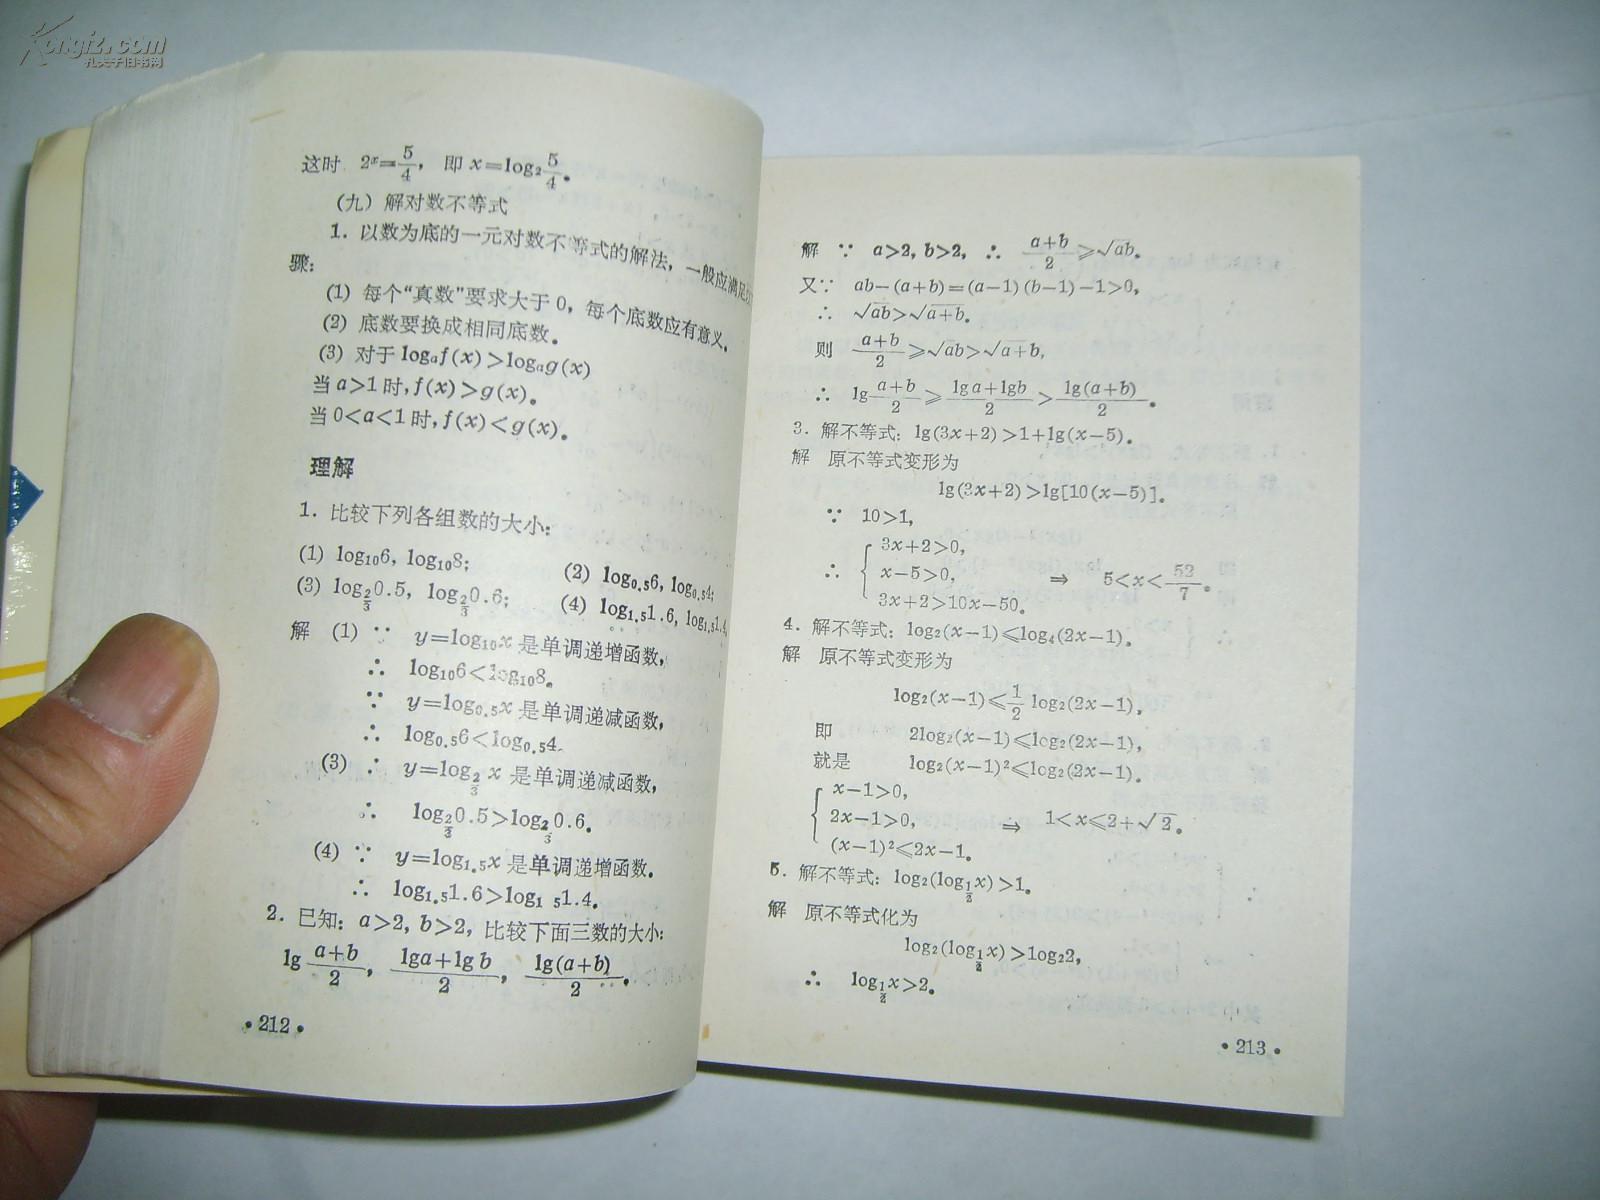 Kongfz.com
孔夫子旧书网
这时 2ˣ=5/4, 即 x=log₂5/4。
(九) 解对数不等式
1. 以数为底的一元对数不等式的解法, 一般应满足
骤:
(1) 每个“真数”要求大于 0, 每个底数应有意义。
(2) 底数要换成相同底数。
(3) 对于 logₐf(x)>logₐg(x)
当 a>1 时, f(x)>g(x)。
当 0<a<1 时, f(x)<g(x)。
理解
1. 比较下列各组数的大小:
(1) log₁₀6, log₁₀8; (2) log₀.₅6, log₀.₅4;
(3) log_{2/3}0.5, log_{2/3}0.6; (4) log₁.₅1.6, log₁.₅1.4.
解 (1) ∵ y=log₁₀x 是单调递增函数,
∴ log₁₀6<log₁₀8。
∵ y=log₀.₅x 是单调递减函数,
∴ log₀.₅6<log₀.₅4.
(3) ∵ y=log_{2/3}x 是单调递减函数,
∴ log_{2/3}0.5>log_{2/3}0.6。
(4) ∵ y=log₁.₅x 是单调递增函数。
∴ log₁.₅1.6>log₁ ₅1.4。
2. 已知: a>2, b>2, 比较下面三数的大小:
lg (a+b)/2, (lga+lgb)/2, lg(a+b)/2。
•212•
解 ∵ a>2, b>2, ∴ (a+b)/2≥√ab。
又∵ ab-(a+b)=(a-1)(b-1)-1>0,
∴ √ab>√a+b。
则 (a+b)/2≥√ab>√a+b,
∴ lg (a+b)/2≥(lga+lgb)/2>lg(a+b)/2。
3. 解不等式: lg(3x+2)>1+lg(x-5)。
解 原不等式变形为
lg(3x+2)>lg[10(x-5)]。
∵ 10>1,
3x+2>0,
∴ { x-5>0, ⇒ 5<x<52/7。
3x+2>10x-50。
4. 解不等式: log₂(x-1)≤log₄(2x-1)。
解 原不等式变形为
log₂(x-1)≤1/2 log₂(2x-1),
即 2log₂(x-1)≤log₂(2x-1),
就是 log₂(x-1)²≤log₂(2x-1)。
x-1>0,
{ 2x-1>0, ⇒ 1<x≤2+√2。
(x-1)²≤2x-1。
5. 解不等式: log₂(log_{1/2}x)>1。
解 原不等式化为
log₂(log_{1/2}x)>log₂2,
∴ log_{1/2}x>2。
•213•